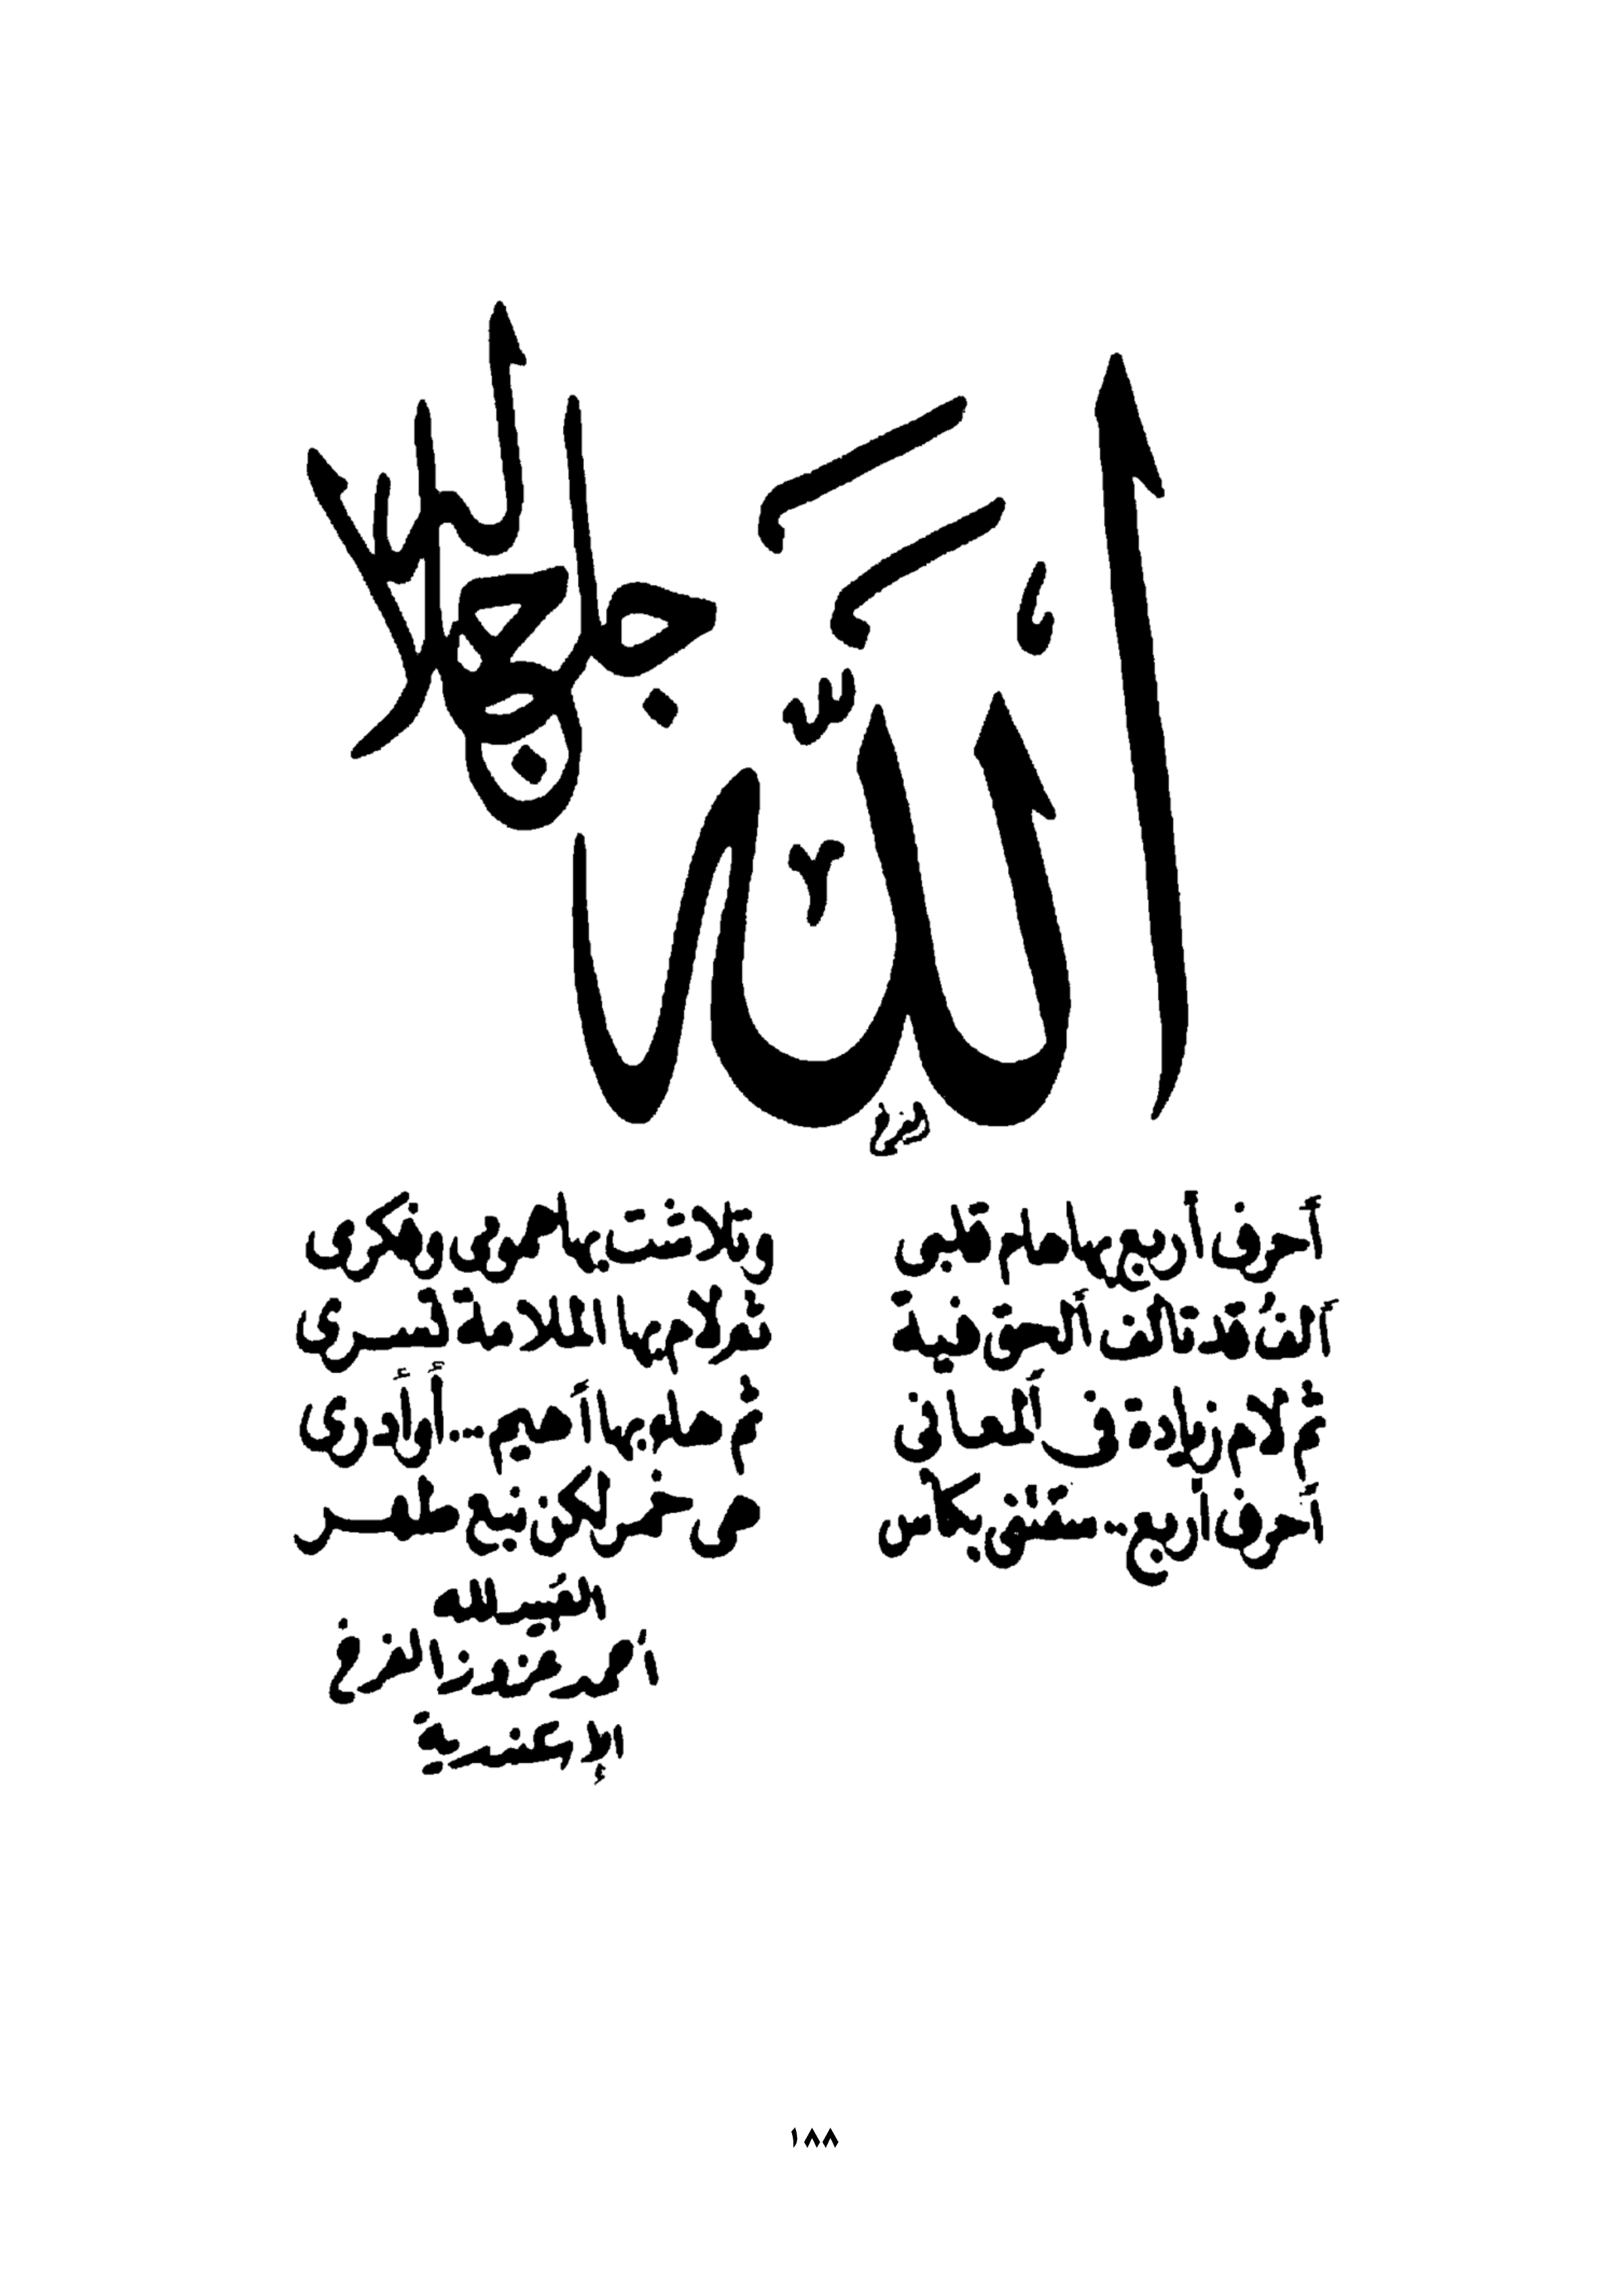 الله جل جلاله
أحرف أربع بها هام قلبي وتلاشت بها همومي وفكري
ألف قد تألف الحق فيه ثم لام بها الملامة تسري
ثم لام زيادة في المعاني ثم هاء بها أهيم.. أو أدري
أحرف أربع.. سقتني بكأس من خمر لكن نبع طهر
لله
أحمد الفرخ
الإسكندرية
١٨٨